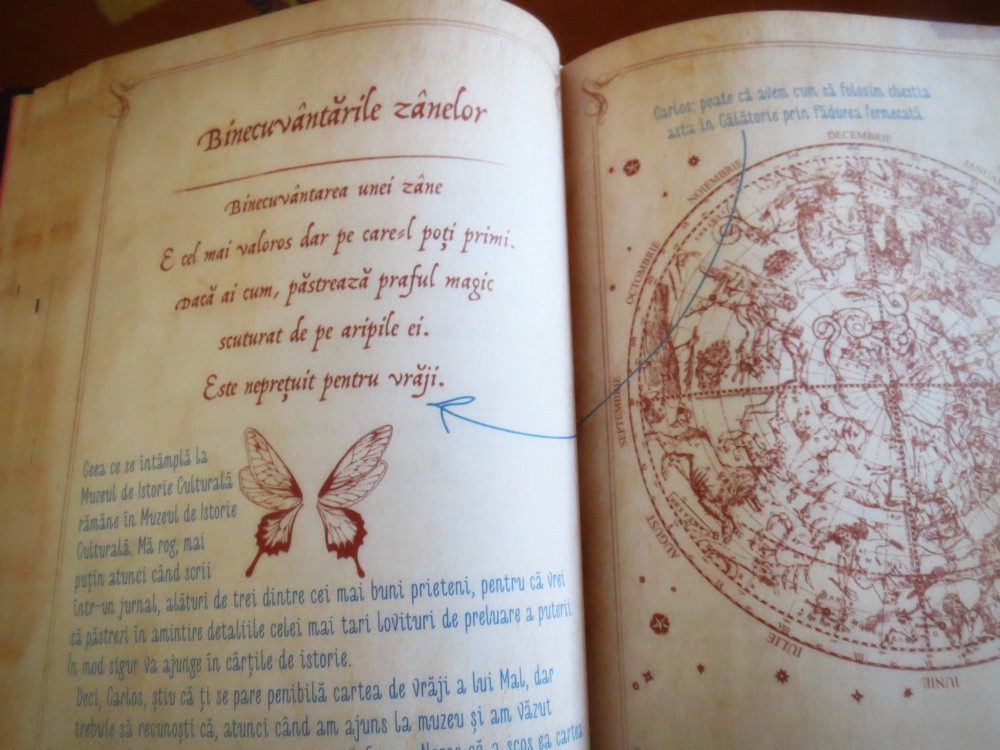 Binecuvântările zânelor
Binecuvântarea unei zâne
E cel mai valoros dar pe care-l poți primi.
Dacă ai cum, păstrează praful magic
scuturat de pe aripile ei.
Este neprețuit pentru vrăji.
Ceea ce se întâmplă la
Muzeul de Istorie Culturală
rămâne în Muzeul de Istorie
Culturală. Mă rog, mai
puțin atunci când scrii
într-un jurnal, alături de trei dintre cei mai buni prieteni, pentru că vrei
să păstrezi în amintire detaliile celei mai tari lovituri de preluare a puterii.
În mod sigur va ajunge în cărțile de istorie.
Deci, Carlos, știu că ți se pare penibilă cartea de vrăji a lui Mal, dar
trebuie să recunoști că, atunci când am ajuns la muzeu și am văzut
că a scos ea cartea
Carlos: poate că avem cum să folosim chestia
asta în Călătorie prin Pădurea fermecată.
DECEMBRIE
NOIEMBRIE
OCTOMBRIE
SEPTEMBRIE
AUGUST
IULIE
IUNIE